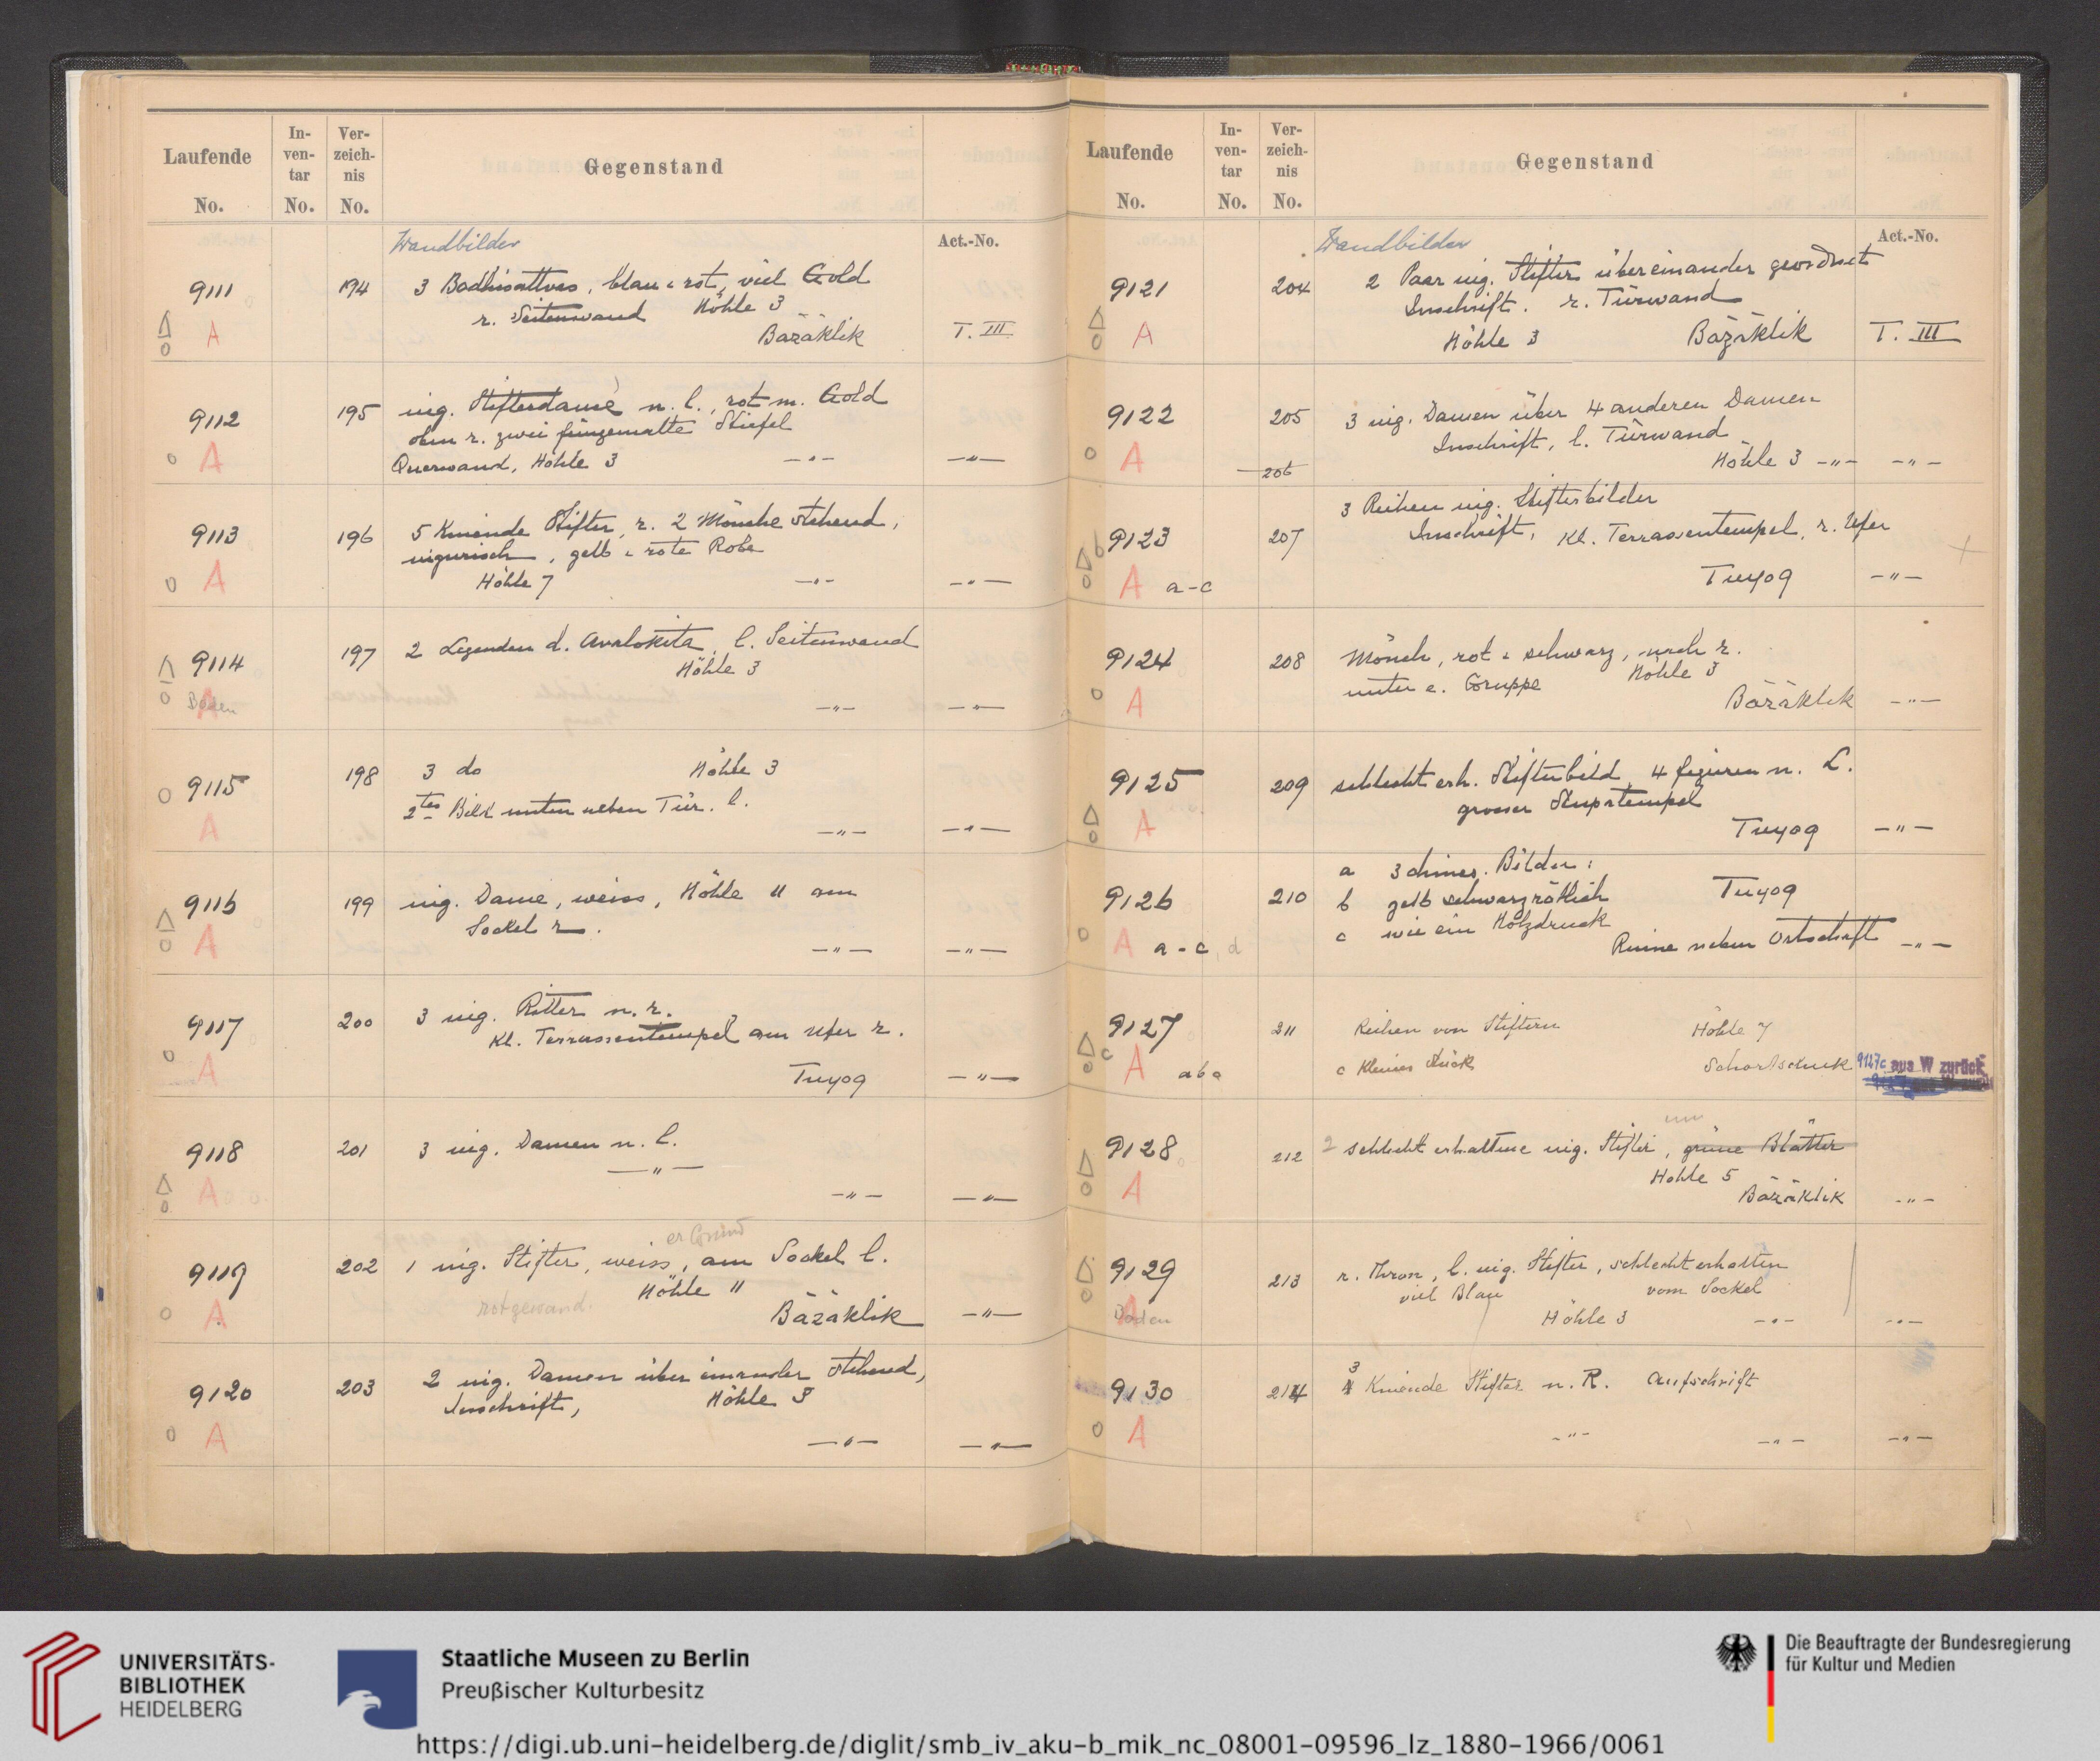 Laufende No.
In-ven-tar No.
Ver-zeich-nis No.
Gegenstand
Wandbilder
Act.-No.
9111 194 3 Bodhisattvas, blau u rot, viel Gold
A r. Seitenwand Höhle 3
Bäzäklik T. III
9112 195 uig. Stifterdame n. l., rot m. Gold
oben r. zwei Stiefel
A Querwand, Höhle 3 —"— —"—
9113 196 5 Knieende Stifter, r. 2 Mönche stehend,
uigurisch, gelb u rote Robe
A Höhle 7 —"— —"—
9114 197 2 Legenden d. Avalokita, l. Seitenwand
Höhle 3
A Boden —"— —"—
9115 198 3 do Höhle 3
2tes Bild unten neben Tür. l.
A —"— —"—
9116 199 uig. Dame, weiss, Höhle 11 am
Sockel r.
A —"— —"—
9117 200 3 uig. Ritter n. r.
Kl. Terrassentempel am Ufer r.
A Tuyoq —"—
9118 201 3 uig. Damen n. l.
—"—
A —"— —"—
er Grund
9119 202 1 uig. Stifter, weiss, am Sockel l.
Höhle 11
A rotgewand. Bäzäklik —"—
9120 203 2 uig. Damen über einander stehend,
Inschrift, Höhle 3
A —"— —"—
Laufende No.
In-ven-tar No.
Ver-zeich-nis No.
Gegenstand
Wandbilder
Act.-No.
9121 204 2 Paar uig. Stifter übereinander geordnet
Inschrift. r. Türwand
A Höhle 3 Bäzäklik T. III
9122 205 3 uig. Damen über 4 anderen Damen
Inschrift, l. Türwand
A 206 Höhle 3 —"— —"—
3 Reihen uig. Stifterbilder
b 9123 207 Inschrift, Kl. Terrassentempel, r. Ufer
A a-c Tuyoq —"—
9124 208 Mönch, rot u schwarz, nach r.
unter e. Gruppe Höhle 3
A Bäzäklik —"—
9125 209 schlecht erh. Stifterbild, 4 figuren n. L.
grosser Stupatempel
A Tuyoq —"—
a 3 chines. Bilder:
9126 210 b gelb schwarzrötlich Tuyoq
c wie ein Holzdruck
A a-c, d Ruine neben Ortschaft —"—
9127 211 Reihen von Stiftern Höhle 7
c A abc c Kleines Stück Schortschuk 9127c aus W zurück
um
9128 212 2 schlecht erhaltene uig. Stifter, grüne Blätter
Höhle 5
A Bäzäklik —"—
9129 213 r. Thron, l. uig. Stifter, schlecht erhalten
viel Blau vom Sockel
A Boden Höhle 3 —"— —"—
9130 214 3 Knieende Stifter n. R. Aufschrift
A —"— —"— —"—
UNIVERSITÄTS-
BIBLIOTHEK
HEIDELBERG
Staatliche Museen zu Berlin
Preußischer Kulturbesitz
Die Beauftragte der Bundesregierung
für Kultur und Medien
https://digi.ub.uni-heidelberg.de/diglit/smb_iv_aku-b_mik_nc_08001-09596_lz_1880-1966/0061